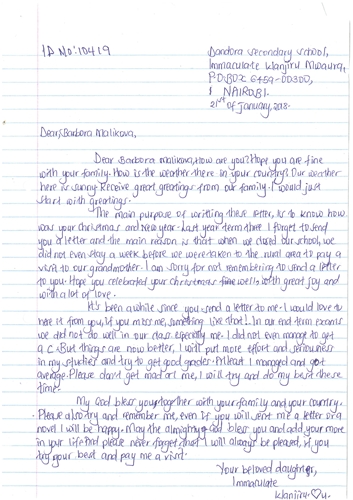 ID No: 10419
Dandora Secondary School,
Immaculate Wanjiru Mwaura,
P.O. BOX 6459-00300,
NAIROBI.
21st of January, 2018.
Dear, Barbora Malikova,
Dear Barbora malikova, How are you? Hope you are fine
with your family. How is the weather there in your country? Our weather
here is sunny. Receive great greetings from our family. I would just
start with greetings.
The main purpose of writting these letter, is to know how
was your christmas and new year. Last year term three I forget to send
you a letter and the main reason is that when we closed our school, we
did not even stay a week before we were taken to the rural area to pay a
visit to our grandmother. I am sorry for not remembering to send a letter
to you. Hope you celebrated your christmas time well with great joy and
with a lot of love.
It's been a while since you send a letter to me. I would love to
here it from you, if you miss me, something like that!. In our end term exams
we did not do well in our class especially me. I did not even manage to get
a C. But things are now better, I will put more effort and seriousness
in my studies and try to get good grades. Atleast I managed and got
average. Please don't get mad at me, I will try and do my best these
time.
My God bless you together with your family and your country.
Please also try and remember me, even if you will sent me a letter or a
novel I will be happy. May the almighty God bless you and add your more
in your life. And please never forget, that I will always be pleased, if you
try your best and pay me a visit.
Your beloved daughter,
Immaculate
Wanjiru ♡ u.